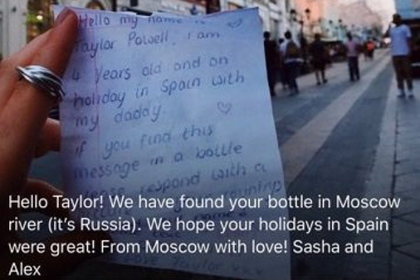 Hello my name is
Taylor Powell. I am
4 years old and on
holiday in Spain with
my daddy.
if you find this
message in a bottle
please respond with a
Hello Taylor! We have found your bottle in Moscow
river (it's Russia). We hope your holidays in Spain
were great! From Moscow with love! Sasha and
Alex